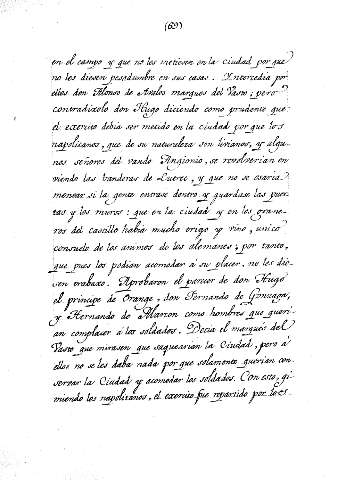 (69)
en el campo y que no los metiesen en la ciudad por que
no les diesen pesadumbre en sus casas. Intercedia por
ellos don Alonso de Avalos marques del Vasto; pero
contradixolo don Hugo diciendo como prudente que
el exercito debia ser metido en la ciudad por que los
napolitanos, que de su naturaleza son livianos, y algu-
nos señores del vando Angioino, se revolverian en
viendo las banderas de Lutrec, y que no se osaria
menear si la gente entrase dentro y guardase las puer-
tas y los muros: que en la ciudad y en los grane-
ros del castillo habia mucho trigo y vino, unico
consuelo de los animos de los alemanes; por tanto,
que pues los podian acomodar á su placer, no les die-
sen trabaxo. Aprobaron el parecer de don Hugo
el principe de Orange, don Fernando de Gonzaga,
y Hernando de Alarcon como hombres que queri-
an complacer á los soldados. Decia el marques del
Vasto que mirasen que saquearian la Ciudad, pero á
ellos no se les daba nada por que solamente querian con
servar la Ciudad y acomodar los soldados. Con esto, gi-
miendo los napolitanos, el exercito fue repartido por las